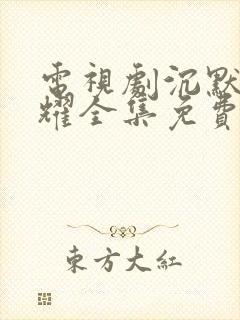 電視劇沉默
耀全集免費
東方大紅